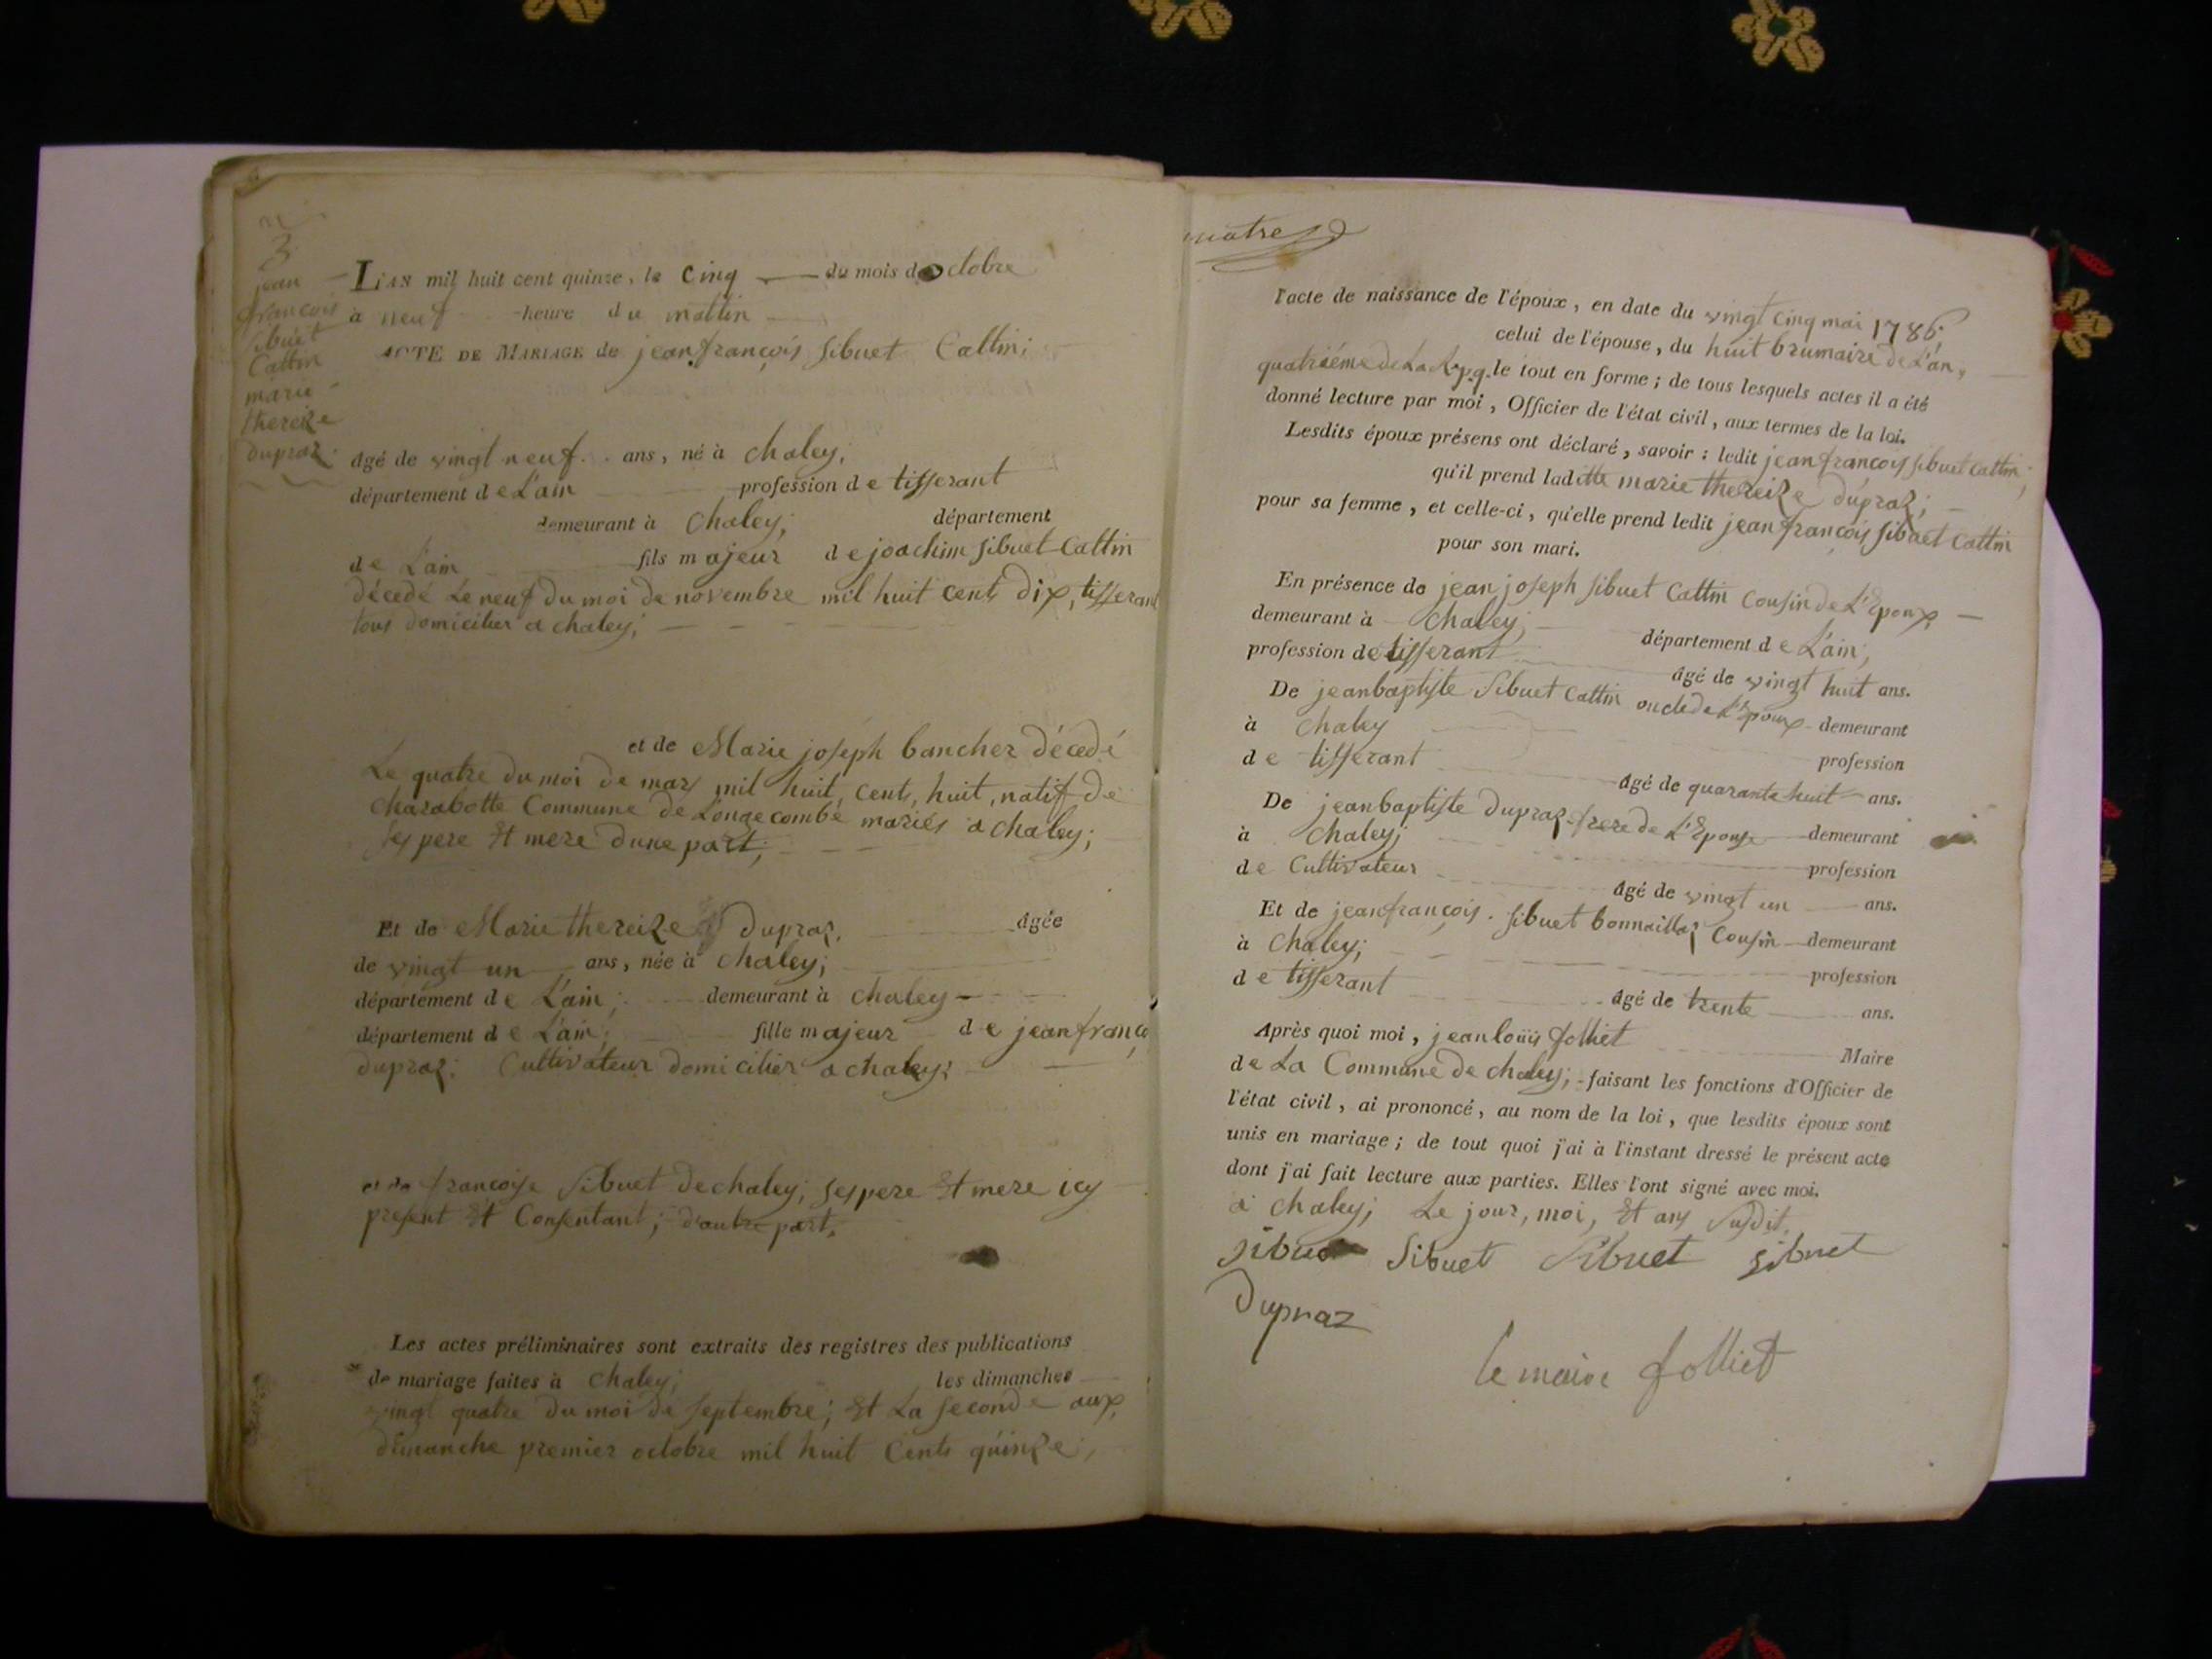 3
jean
françois
sibuet
Cattin
marie
thereize
dupraz.
L'AN mil huit cent quinze, le Cinq du mois doctobre
à neuf heure du mattin
ACTE DE MARIAGE de jean françois Sibuet Cattin;
âgé de vingt neuf ans, né à Chaley,
département de L'ain profession de tisserant
demeurant à Chaley; département
de L'ain fils majeur de joachim sibuet Cattin
décedé Le neuf Du moi de novembre mil huit cents dix, tisserant
tous domicilier a chaley;
et de Marie joseph bancher décedé
Le quatre du moi de mars mil huit, cents, huit, natif de
Charabotte Commune de Longecombe mariés a chaley;
ses pere Et mere dune part;
Et de Marie thereize dupraz, âgée
de vingt un ans, née à Chaley;
département de L'ain; demeurant à chaley
département de L'ain; fille majeur de jean franço
dupraz; Cultivateur domicilier a chaley;
et de françoise sibuet de chaley; ses pere Et mere icy
present Et Consentant; d'autre part,
Les actes préliminaires sont extraits des registres des publications
de mariage faites à Chaley; les dimanches
vingt quatre du moi de septembre; Et La seconde aux
dimanche premier octobre mil huit Cents quinze;
l'acte de naissance de l'époux, en date du vingt cinq mai 1786,
celui de l'épouse, du huit brumaire de L'an,
quatriéme de La le tout en forme; de tous lesquels actes il a été
donné lecture par moi, Officier de l'état civil, aux termes de la loi.
Lesdits époux présens ont déclaré, savoir: ledit jean françois sibuet Cattin;
qu'il prend laditte marie thereize dupraz;
pour sa femme, et celle-ci, qu'elle prend ledit jean françois sibuet Cattin
pour son mari.
En présence de jean joseph sibuet Cattin Cousin de L'Epoux,
demeurant à Chaley; département de L'ain;
profession de tisserant âgé de vingt huit ans.
De jean baptiste Sibuet Cattin oncle de L'Epoux demeurant
à Chaley profession
de tisserant âgé de quarante huit ans.
De jean baptiste dupraz frere de L'Epouse demeurant
à Chaley; profession
de Cultivateur âgé de vingt un ans.
Et de jean françois sibuet bonnaillaz Cousin demeurant
à Chaley; profession
de tisserant âgé de trente ans.
Après quoi moi, jean louis folliet Maire
de La Commune de chaley; faisant les fonctions d'Officier de
l'état civil, ai prononcé, au nom de la loi, que lesdits époux sont
unis en mariage; de tout quoi j'ai à l'instant dressé le présent acte
dont j'ai fait lecture aux parties. Elles l'ont signé avec moi.
a Chaley; Le jour, moi, Et ans susdit.
sibuet Sibuet Sibuet sibuet
Dupraz
le maire folliet